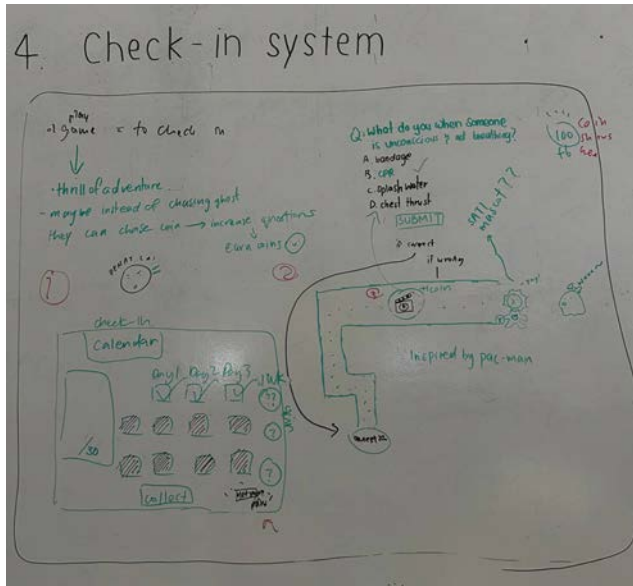 4. Check-in system
play
1 game = to check in
• thrill of adventure
- maybe instead of chasing ghost
they can chase coin → increase questions
Earn coins
Q: What do you when someone
is unconscious & not breathing?
A. bandage
B. CPR
C. Splash water
D. chest thrust
SUBMIT
if correct
if wrong
+1 coin
100
coin
shows
here
SATI
mascot???
Inspired by pac-man
check-in
Calendar
Day 1 Day 2 Day 3 1 WK
??
?
?
/30
collect